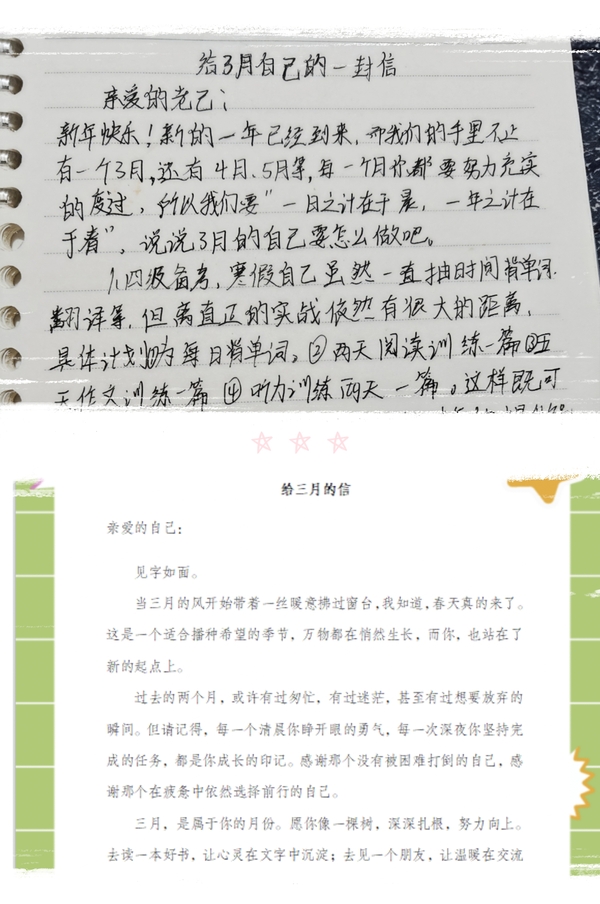 给3月自己的一封信
亲爱的老己：
新年快乐！新的一年已经到来，而我们的手里不止
有一个3月，还有4月、5月等，每一个月你都要努力充实
的度过，所以我们要“一日之计在于晨，一年之计在
于春”，说说3月的自己要怎么做吧。
1、四级备考，寒假自己虽然一直抽时间背单词、
翻译等，但离真正的实战依然有很大的距离，
具体计划①为每日背单词；②两天阅读训练一篇③五
天作文训练一篇④听力训练两天一篇。这样既可
给三月的信
亲爱的自己：
见字如面。
当三月的风开始带着一丝暖意拂过窗台，我知道，春天真的来了。
这是一个适合播种希望的季节，万物都在悄然生长，而你，也站在了
新的起点上。
过去的两个月，或许有过匆忙，有过迷茫，甚至有过想要放弃的
瞬间。但请记得，每一个清晨你睁开眼的勇气，每一次深夜你坚持完
成的任务，都是你成长的印记。感谢那个没有被困难打倒的自己，感
谢那个在疲惫中依然选择前行的自己。
三月，是属于你的月份。愿你像一棵树，深深扎根，努力向上。
去读一本好书，让心灵在文字中沉淀；去见一个朋友，让温暖在交流